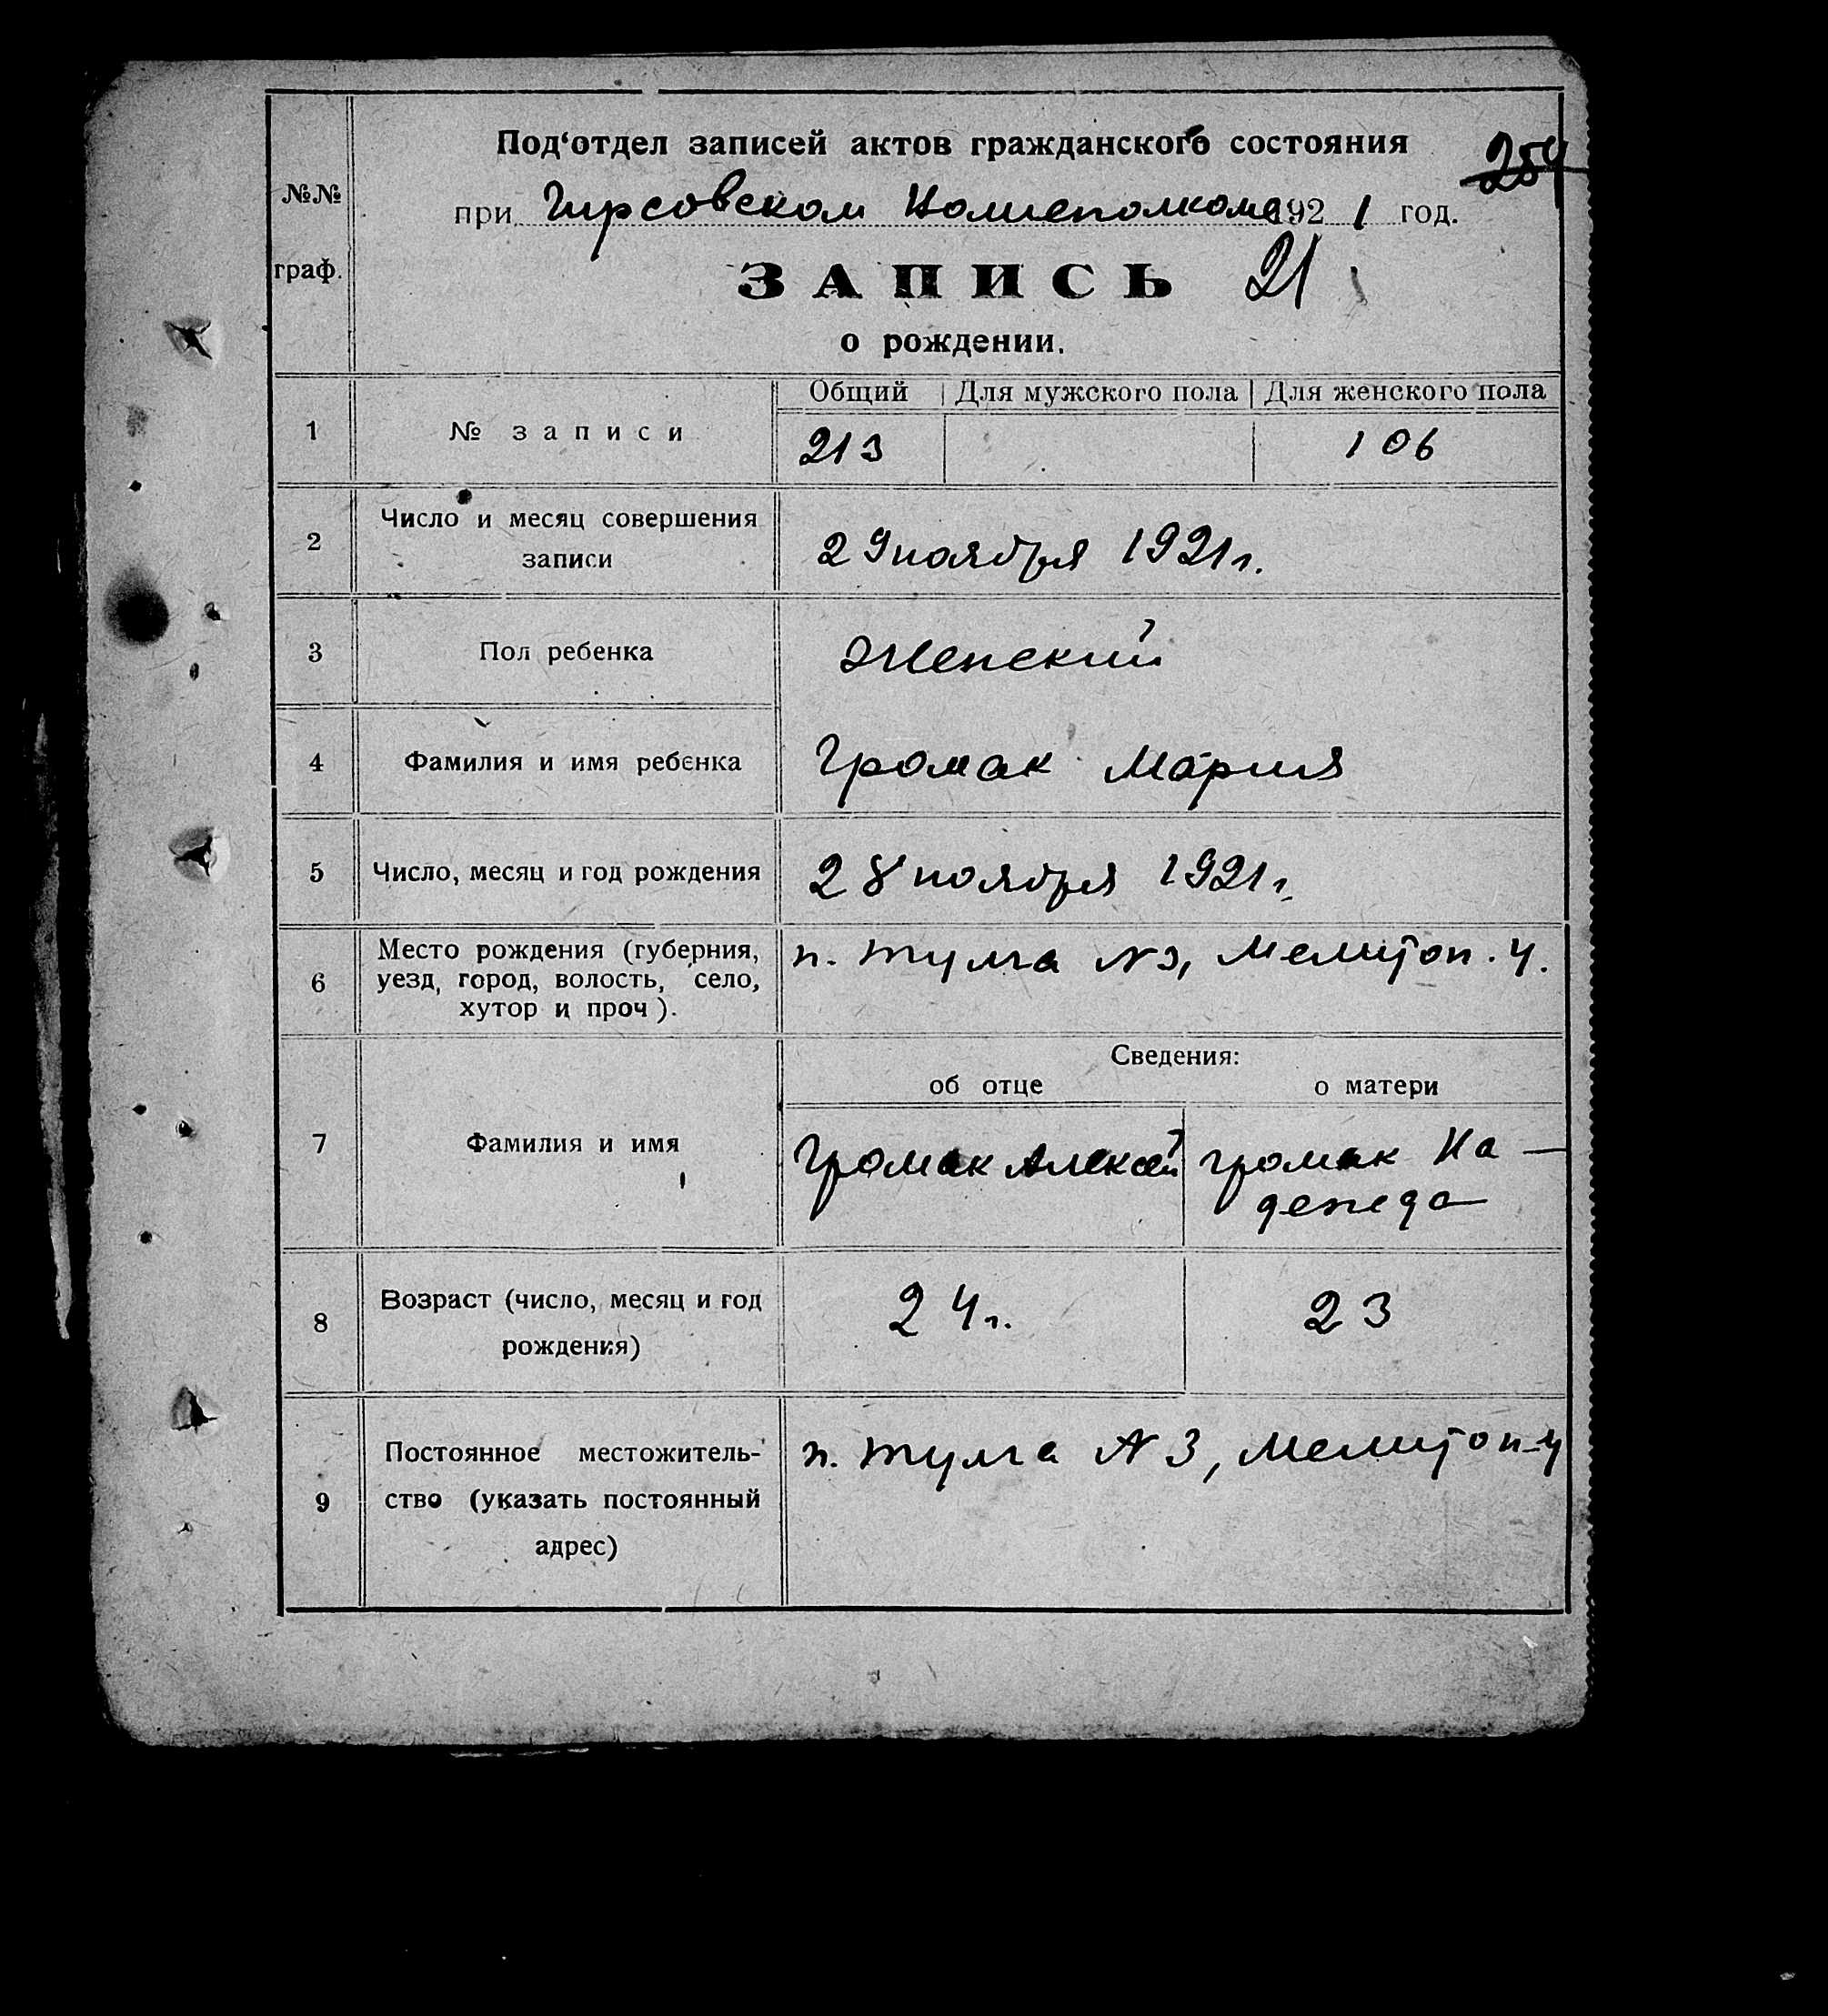 Под‘отдел записей актов гражданского состояния
254
№№
при Гирсовском Волисполкоме 1921 год.
граф.
ЗАПИСЬ 21
о рождении.
Общий Для мужского пола Для женского пола
1 № записи 213 106
2 Число и месяц совершения
записи
29 ноября 1921 г.
3 Пол ребенка Женский
4 Фамилия и имя ребенка Громак Мария
5 Число, месяц и год рождения 28 ноября 1921 г.
6 Место рождения (губерния,
уезд, город, волость, село,
хутор и проч).
п. Тулга N 3, Мелитоп. у.
Сведения:
об отце о матери
7 Фамилия и имя Громак Алексей Громак На-
дежда
8 Возраст (число, месяц и год
рождения)
24 г. 23
9 Постоянное местожитель-
ство (указать постоянный
адрес)
п. Тулга N 3, Мелитоп. у